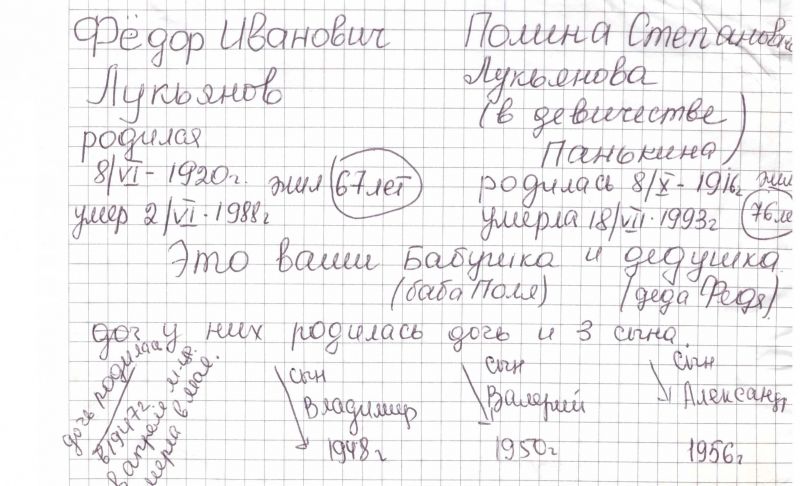 Фёдор Иванович
Лукьянов
родилая
8/VI - 1920г. жил 67 лет
умер 2/VI. 1988г
Полина Степановна
Лукьянова
(в девичестве
Панькина)
родилась 8/X - 1916г жи
умерла 18/VII. 1993г 76 ле
Это ваши Бабушка и дедушка.
(баба Поля) (деда Федя)
доч у них родилась дочь и 3 сына.
дочь родилась
в 1947г.
в апреле м-це.
мерла в мае.
сын
Владимир
1948г
сын
Валерий
1950г
сын
Александр
1956г